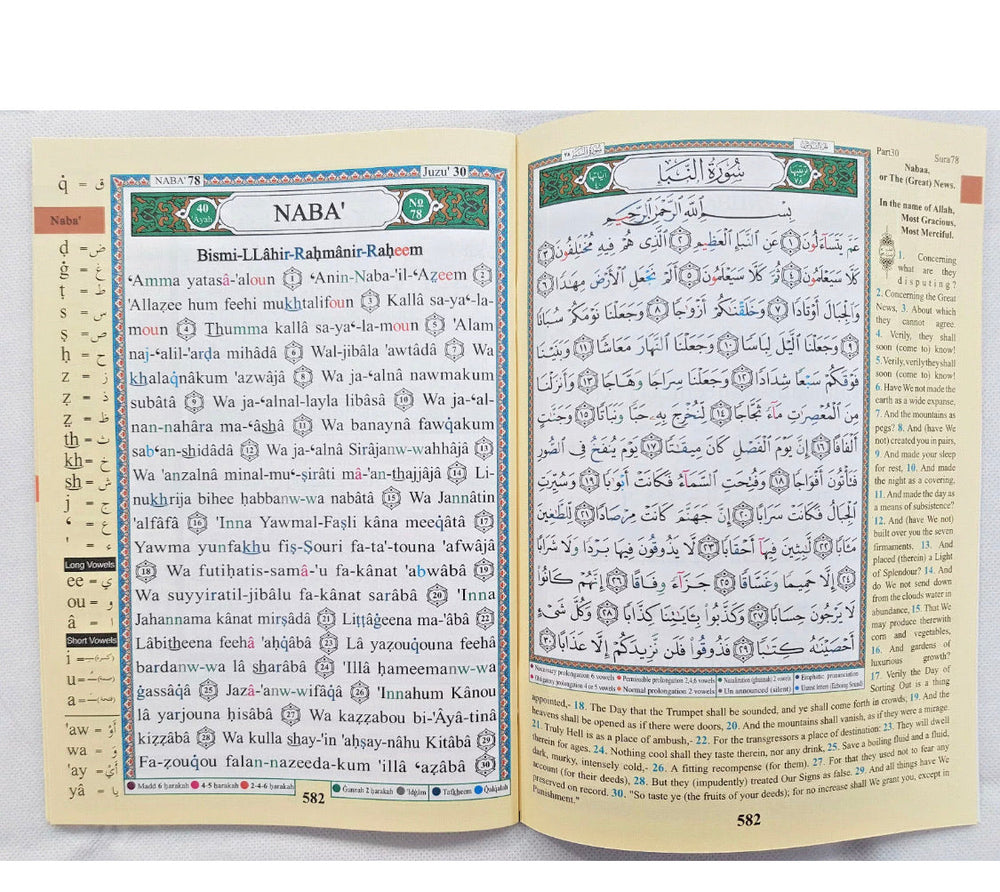 q̇ = ق
Naba'
ḍ = ض
ġ = غ
ṭ = ط
s = س
ṣ = ص
ḥ = ح
z = ز
ẕ = ذ
ẓ = ظ
th = ث
kh = خ
sh = ش
j = ج
ʻ = ع
' = ء
Long Vowels
ee = ي
ou = و
â = ا
Short Vowels
i =
u =
a =
'aw = أَوْ
wa = وَ
'ay = أَيْ
yâ = يَا
NABA' 78
Juzu' 30
40 Ayah
NABA'
No 78
Bismi-LLâhir-Raḥmânir-Raḥeem
ʻAmma yatasâ-'aloun 1 ʻAnin-Naba-'il-ʻAẓeem 2
'Allaẕee hum feehi mukhtalifoun 3 Kallâ sa-yaʻ-la-
moun 4 Thumma kallâ sa-yaʻ-la-moun 5 'Alam
naj-ʻalil-'arḍa mihâdâ 6 Wal-jibâla 'awtâdâ 7 Wa
khalaq̇nâkum 'azwâjâ 8 Wa ja-ʻalnâ nawmakum
subâtâ 9 Wa ja-ʻalnal-layla libâsâ 10 Wa ja-ʻal-
nan-nahâra ma-ʻâshâ 11 Wa banaynâ fawq̇akum
sabʻan-shidâdâ 12 Wa ja-ʻalnâ Sirâjanw-wahhâjâ 13
Wa 'anzalnâ minal-muʻ-ṣirâti mâ-'an-thajjâjâ 14 Li-
nukhrija bihee ḥabbanw-wa nabâtâ 15 Wa Jannâtin
'alfâfâ 16 'Inna Yawmal-Faṣli kâna meeq̇âtâ 17
Yawma yunfakhu fiṣ-Ṣouri fa-ta'-touna 'afwâjâ
18 Wa futiḥatis-samâ-'u fa-kânat 'abwâbâ 19
Wa suyyiratil-jibâlu fa-kânat sarâbâ 20 'Inna
Jahannama kânat mirṣâdâ 21 Liṭṭâġeena ma-'âbâ 22
Lâbitheena feehâ 'aḥq̇âbâ 23 Lâ yaẕouq̇ouna feehâ
bardanw-wa lâ sharâbâ 24 'Illâ ḥameemanw-wa
ġassâq̇â 25 Jazâ-'anw-wifâq̇â 26 'Innahum Kânou
lâ yarjouna ḥisâbâ 27 Wa kaẕẕabou bi-'Âyâ-tinâ
kiẕẕâbâ 28 Wa kulla shay-'in 'aḥṣay-nâhu Kitâbâ 29
Fa-ẕouq̇ou falan-nazeeda-kum 'illâ ʻaẕâbâ 30
Madd 6 ḥarakah 4-5 ḥarakah 2-4-6 ḥarakah
Ġunnah 2 ḥarakah 'Idġâm Tafkheem Qalqalah
582
سُورَةُ النَّبَإِ ٧٨
سُورَةُ النَّبَإِ
بِسْمِ اللَّهِ الرَّحْمَٰنِ الرَّحِيمِ
عَمَّ يَتَسَاءَلُونَ ١ عَنِ النَّبَإِ الْعَظِيمِ ٢ الَّذِي هُمْ فِيهِ مُخْتَلِفُونَ ٣
كَلَّا سَيَعْلَمُونَ ٤ ثُمَّ كَلَّا سَيَعْلَمُونَ ٥ أَلَمْ نَجْعَلِ الْأَرْضَ مِهَٰدًا ٦
وَالْجِبَالَ أَوْتَادًا ٧ وَخَلَقْنَٰكُمْ أَزْوَٰجًا ٨ وَجَعَلْنَا نَوْمَكُمْ سُبَاتًا
٩ وَجَعَلْنَا الَّيْلَ لِبَاسًا ١٠ وَجَعَلْنَا النَّهَارَ مَعَاشًا ١١ وَبَنَيْنَا
فَوْقَكُمْ سَبْعًا شِدَادًا ١٢ وَجَعَلْنَا سِرَاجًا وَهَّاجًا ١٣ وَأَنزَلْنَا
مِنَ الْمُعْصِرَٰتِ مَاءً ثَجَّاجًا ١٤ لِّنُخْرِجَ بِهِ حَبًّا وَنَبَاتًا ١٥ وَجَنَّٰتٍ
أَلْفَافًا ١٦ إِنَّ يَوْمَ الْفَصْلِ كَانَ مِيقَٰتًا ١٧ يَوْمَ يُنفَخُ فِي الصُّورِ
فَتَأْتُونَ أَفْوَاجًا ١٨ وَفُتِحَتِ السَّمَاءُ فَكَانَتْ أَبْوَٰبًا ١٩ وَسُيِّرَتِ
الْجِبَالُ فَكَانَتْ سَرَابًا ٢٠ إِنَّ جَهَنَّمَ كَانَتْ مِرْصَادًا ٢١ لِّلطَّٰغِينَ
مَـَٔابًا ٢٢ لَّٰبِثِينَ فِيهَا أَحْقَابًا ٢٣ لَّا يَذُوقُونَ فِيهَا بَرْدًا وَلَا شَرَابًا
٢٤ إِلَّا حَمِيمًا وَغَسَّاقًا ٢٥ جَزَاءً وِفَاقًا ٢٦ إِنَّهُمْ كَانُوا
لَا يَرْجُونَ حِسَابًا ٢٧ وَكَذَّبُوا بِـَٔايَٰتِنَا كِذَّابًا ٢٨ وَكُلَّ شَيْءٍ
أَحْصَيْنَٰهُ كِتَٰبًا ٢٩ فَذُوقُوا فَلَن نَّزِيدَكُمْ إِلَّا عَذَابًا ٣٠
Necessary prolongation 6 vowels Permissible prolongation 2,4,6 vowels Nazalization (ghunnah) 2 vowels Emphatic pronunciation
Obligatory prolongation 4 or 5 vowels Normal prolongation 2 vowels Un announced (silent) Unrest letters (Echoing Sound)
Part30 Sura78
Nabaa,
or The (Great) News.
In the name of Allah,
Most Gracious,
Most Merciful.
1. Concerning
what are they
disputing?
2. Concerning the Great
News, 3. About which
they cannot agree.
4. Verily, they shall
soon (come to) know!
5. Verily, verily they shall
soon (come to) know!
6. Have We not made the
earth as a wide expanse,
7. And the mountains as
pegs? 8. And (have We
not) created you in pairs,
9. And made your sleep
for rest, 10. And made
the night as a covering,
11. And made the day as
a means of subsistence?
12. And (have We not)
built over you the seven
firmaments, 13. And
placed (therein) a Light
of Splendour? 14. And
do We not send down
from the clouds water in
abundance, 15. That We
may produce therewith
corn and vegetables,
16. And gardens of
luxurious growth?
17. Verily the Day of
Sorting Out is a thing
appointed,- 18. The Day that the Trumpet shall be sounded, and ye shall come forth in crowds; 19. And the
heavens shall be opened as if there were doors, 20. And the mountains shall vanish, as if they were a mirage.
21. Truly Hell is as a place of ambush,- 22. For the transgressors a place of destination: 23. They will dwell
therein for ages. 24. Nothing cool shall they taste therein, nor any drink, 25. Save a boiling fluid and a fluid,
dark, murky, intensely cold,- 26. A fitting recompense (for them). 27. For that they used not to fear any
account (for their deeds), 28. But they (impudently) treated Our Signs as false. 29. And all things have We
preserved on record. 30. "So taste ye (the fruits of your deeds); for no increase shall We grant you, except in
Punishment."
582